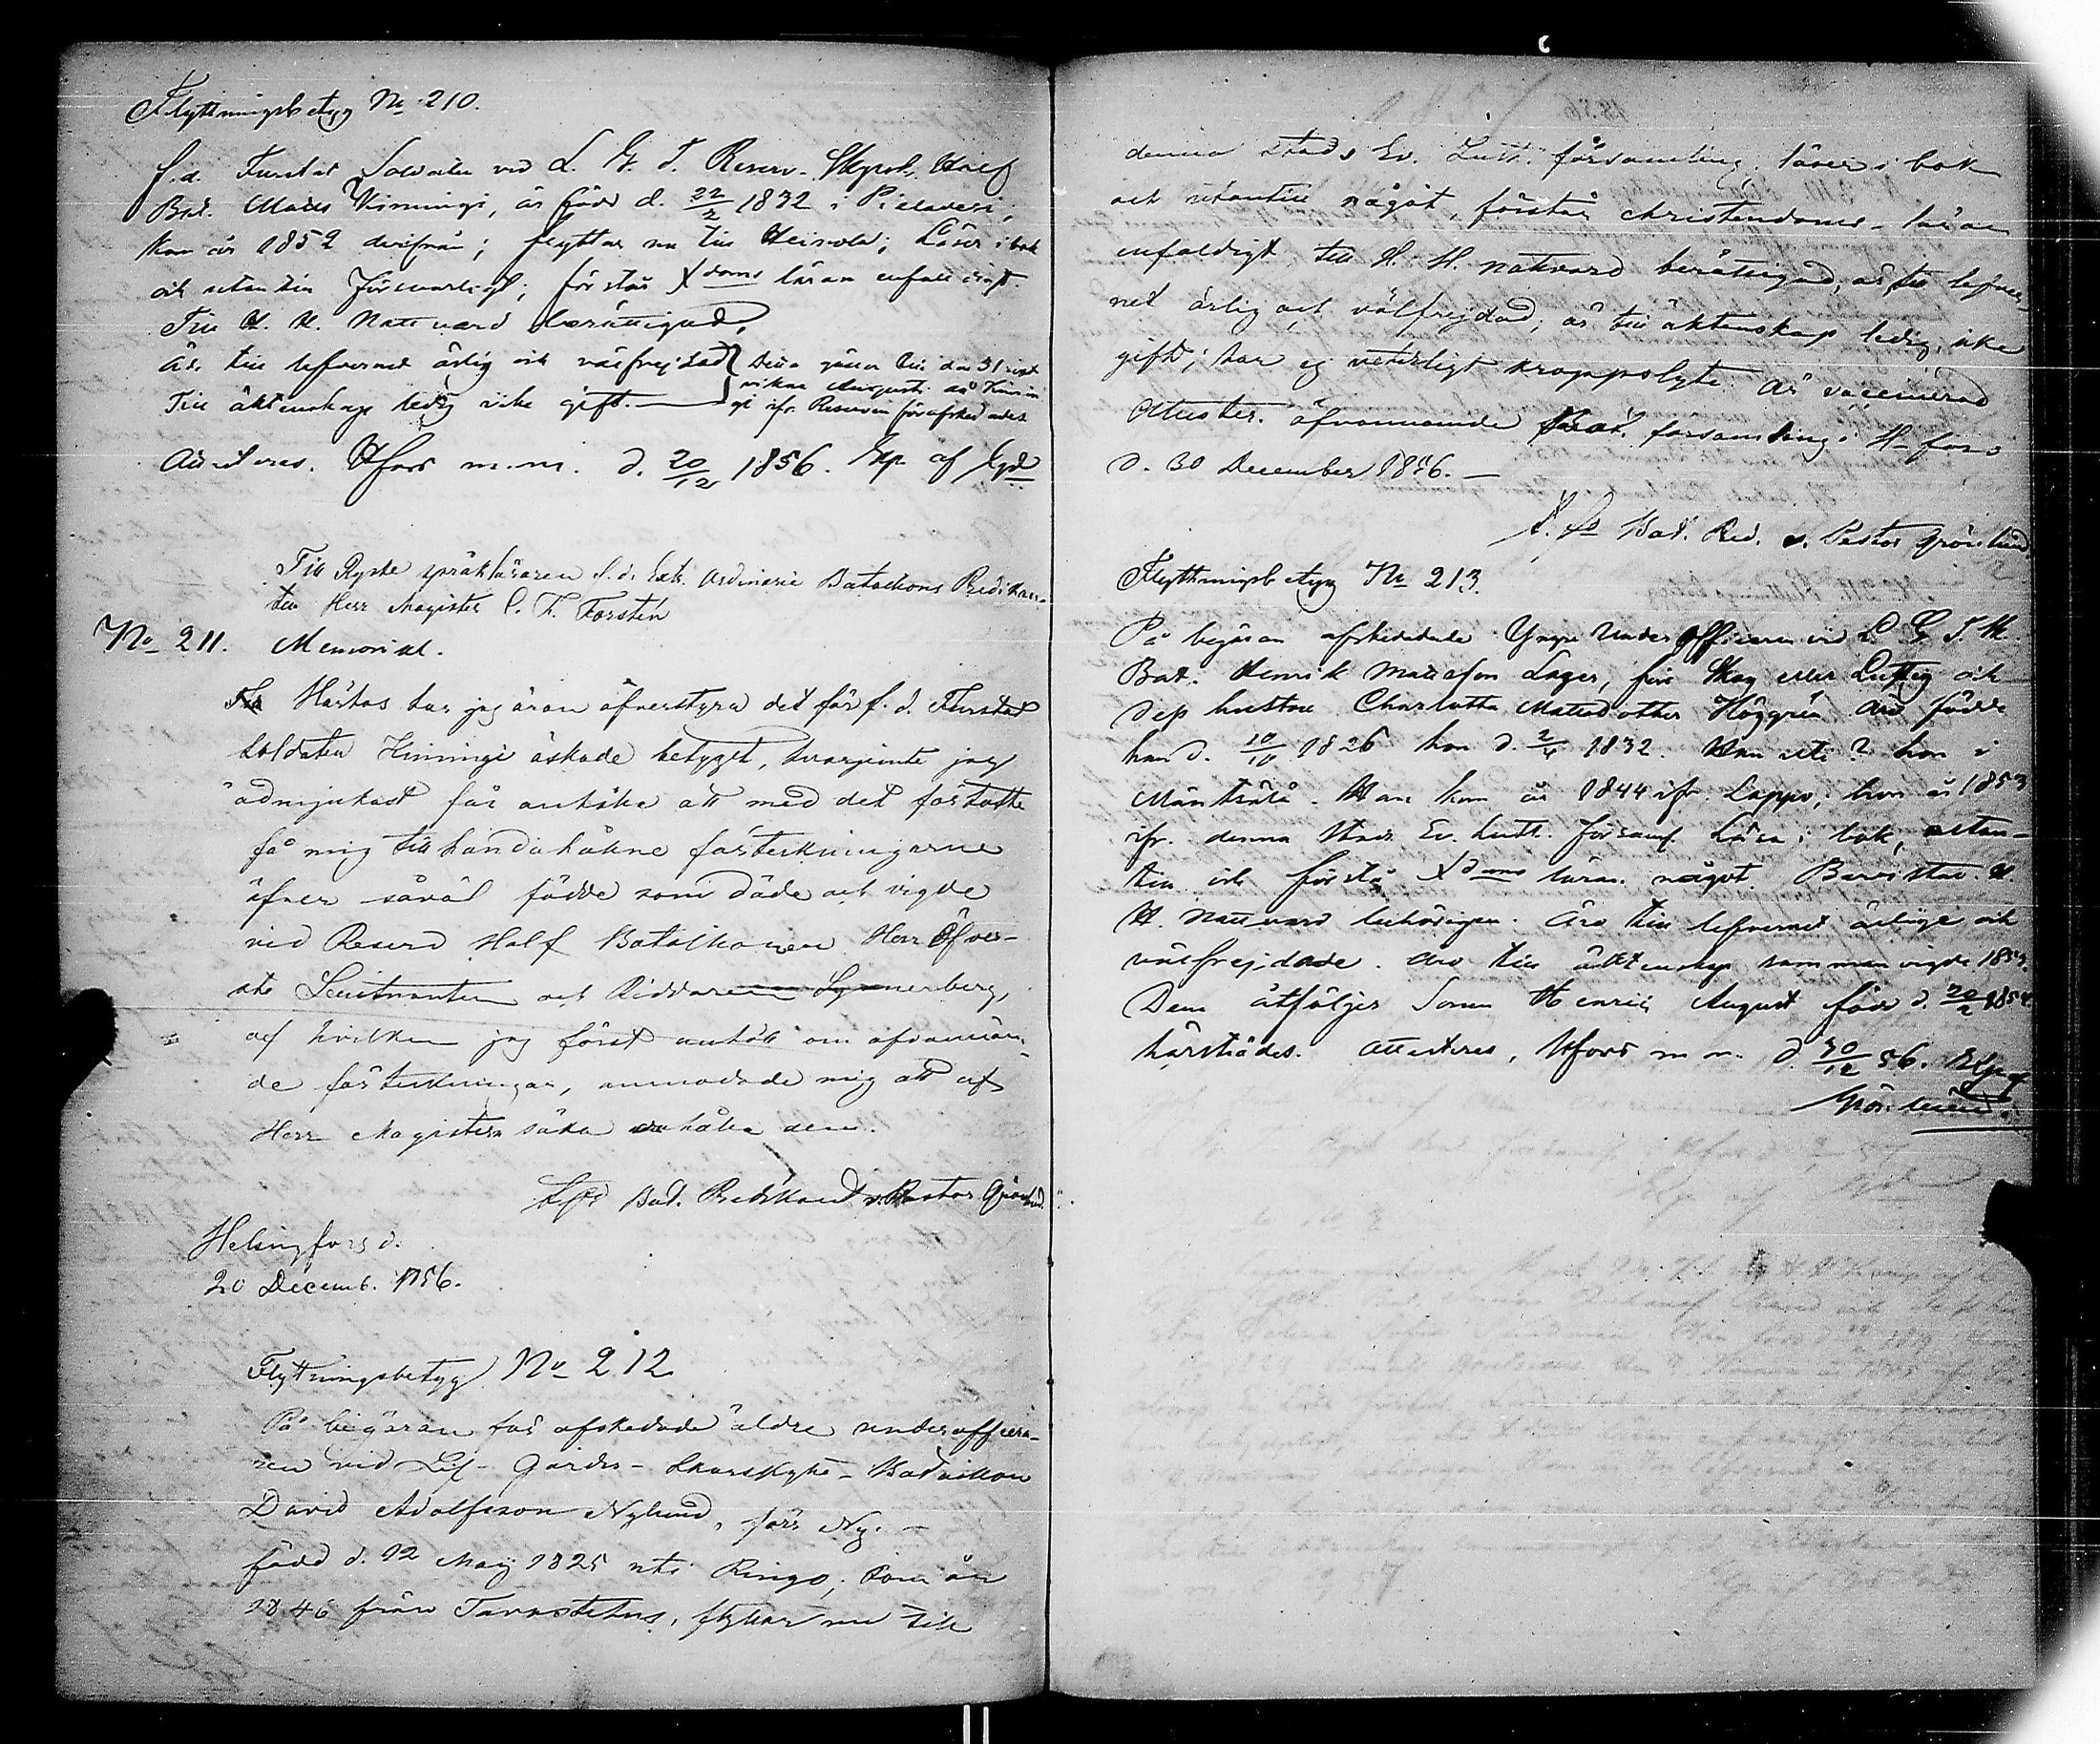 Flyttningsbetyg No 210.
f.d. Furstat Soldaten vid L. G. F. Reserv. Skprsk. Half
Bat. Matts Kinningi, är född d. 22/2 1832 i Pielavesi,
kom år 1852 derifrån; flyttar nu till Heinola; Läser i bok
och utantill försvarligt; förstår Xdoms läran enfaldigt.
Till H. H. Nattvard berättigad.
Är till lefvernet ärlig och välfrejdad
Till äktenskap ledig icke gift.
Detta gäller till den 31 sist
vikne Augusti då Kinnin
gi ifr. Reserven förafskedades
Attesteras. Hfors m.m. d. 20/12 1856. Exp. af Gpd
Till Ryske språkläraren f.d. Extr. Ordinarie Bataillons Predikan-
ten Herr Magister C. K. Forstén
No 211. Memorial.
Härhos har jag äran öfverstyra det för f.d. Furstat
Soldaten Kinningi äskade betyget, hvarjemte jag
ödmjukast får anhålla att med det förtaste
få mig tillhandahållne förteckningarne
öfver såväl födde som döde och vigde
vid Reserv Half Bataillonen. Herr Öfver-
ste Lieutnanten och Riddaren Lynnerberg,
af hvilken jag först anhöll om ofvannäm-
de förteckningar, anmodade mig att af
Herr Magistern söka erhålla dem.
Lfgs Bat. Predikant v. Pastor Grönlund.
Helsingfors d.
20 Decemb. 1856.
Flyttningsbetyg No 212
På begäran får afskedade äldre underofficera-
ren vid Lif-Gardes-Skarpskytte-Bataillon
David Adolfsson Nylund, förr Ny. -
född d. 12 Maij 1825 uti Ringo, kom år
1846 från Tavastehus, flyttar nu till
denna stads Ev. Luth. församling; läser i bok
och utantill något, förstår christendoms-läran
enfaldigt till H. H. nattvard berättigad, är till lefver-
net ärlig och välfrejdad; är till äktenskap ledig, icke
gift; har ej veterligt kroppslyte. Är vaccinerad
Attester. ofvannämnde församling i H-fors
d. 30 December 1856. -
L. Gs Bat. Pred. v. Pastor Grönlund.
Flyttningsbetyg No 213.
På begäran afskedade Yngre Underofficeren vid L. G. F. Sk.
Bat. Henrik Mattsson Lager, förr Skog eller Luftig och
dess hustru Charlotta Matsdotter Höggrén äro födde
han d. 10/10 1826 hon d. 2/4 1832. Han uti ? hon i
Mäntsälä. Han kom år 1844 ifr. Lappo, hon år 1853
ifr. denna Stads Ev. Luth. Församl. Läsa i bok, utan-
till och förstå Xdoms läran något. Bevistar H
H. Nattvard behörigen. Äro till lefvernet ärlige och
välfrejdade. Äro till äktenskap sammanvigde 1853.
Dem åtföljer Sonen Henric August född d. 20/2 1854
härstädes. Attesteras, Hfors m.m. d. 30/12 56. Exp af
Grönlund.